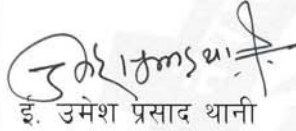 ई. उमेश प्रसाद थानी